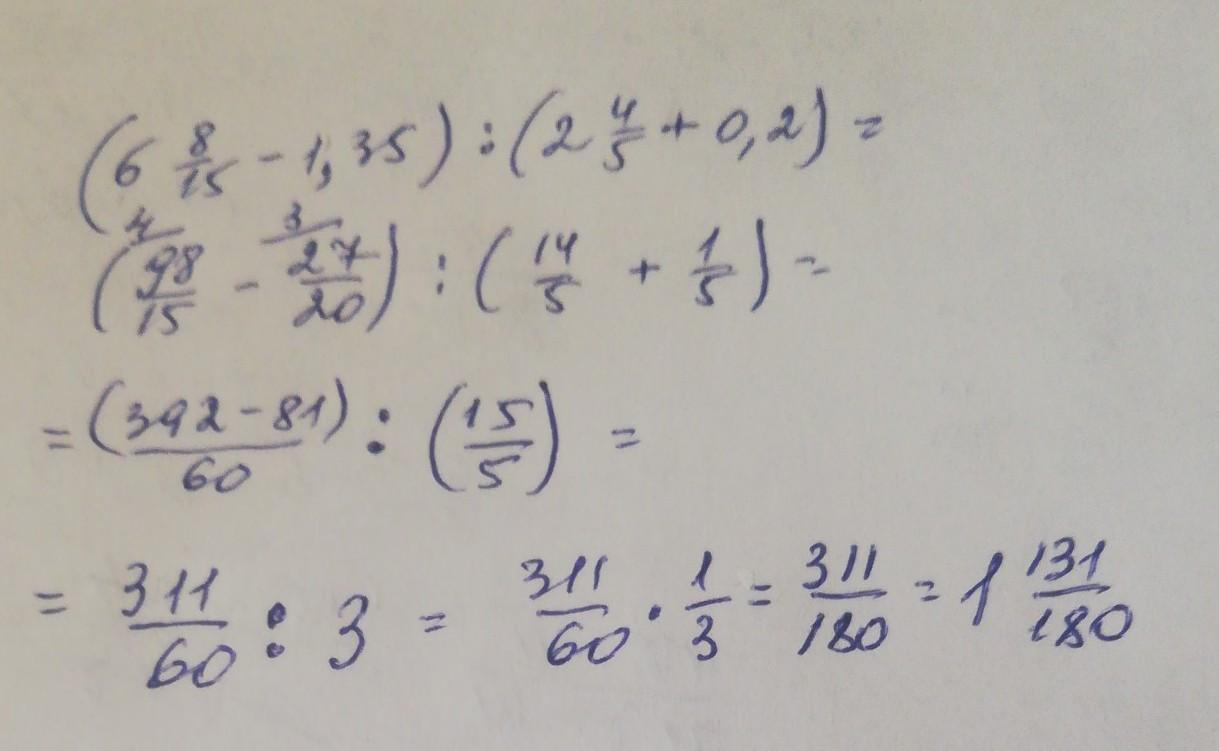 (6 8/15 - 1,35) : (2 4/5 + 0,2) =
(98/15 ^4 - 27/20 ^3) : (14/5 + 1/5) =
= (392 - 81)/60 : (15/5) =
= 311/60 : 3 = 311/60 · 1/3 = 311/180 = 1 131/180